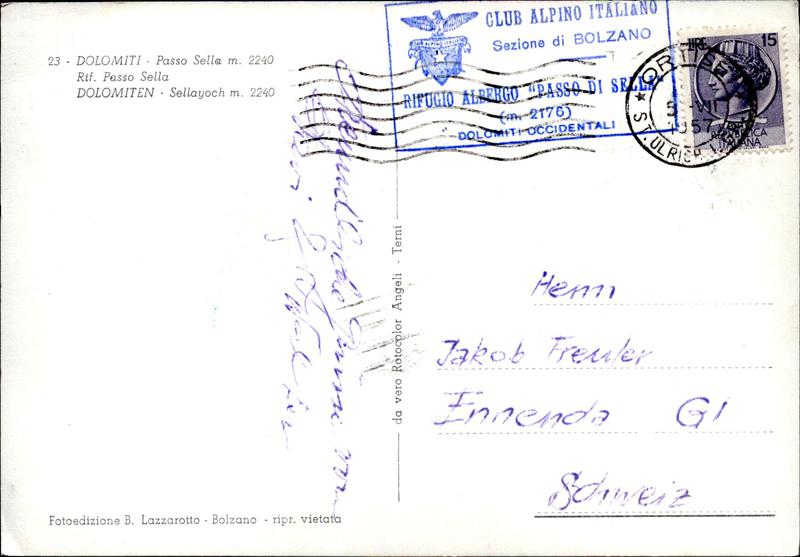 23 - DOLOMITI - Passo Sella m. 2240
Rif. Passo Sella
DOLOMITEN - Sellayoch m. 2240
CLUB ALPINO ITALIANO
Sezione di BOLZANO
CLUB ALPINO ITALIANO
RIFUGIO ALBERGO "PASSO DI SELLA"
(m. 2176)
DOLOMITI OCCIDENTALI
LIRE 15
REPUBBLICA
ITALIANA
ORTISEI
VII
1957
ST. ULRICH
da vero Rotocolor Angeli - Terni
Herrn
Jakob Freuler
Ennenda Gl
Schweiz
Fotoedizione B. Lazzarotto - Bolzano - ripr. vietata